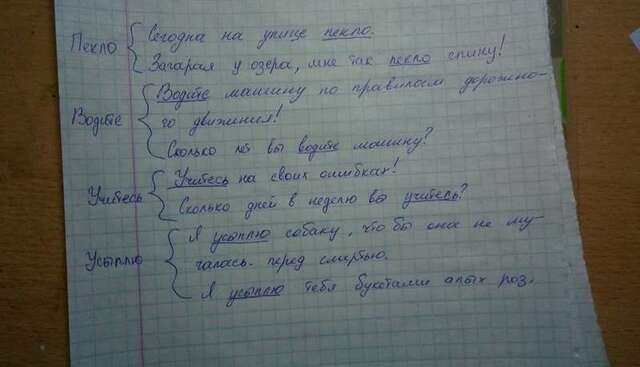 Пекло
Сегодня на улице пекло.
Загарая у озера, мне так пекло спину!
Водите
Водите машину по правилам дорожно-
го движения!
Сколько лет вы водите машину?
Учитесь
Учитесь на своих ошибках!
Сколько дней в неделю вы учитесь?
Усыплю
Я усыплю собаку, что бы она не му-
чалась перед смертью.
Я усыплю тебя букетами алых роз.